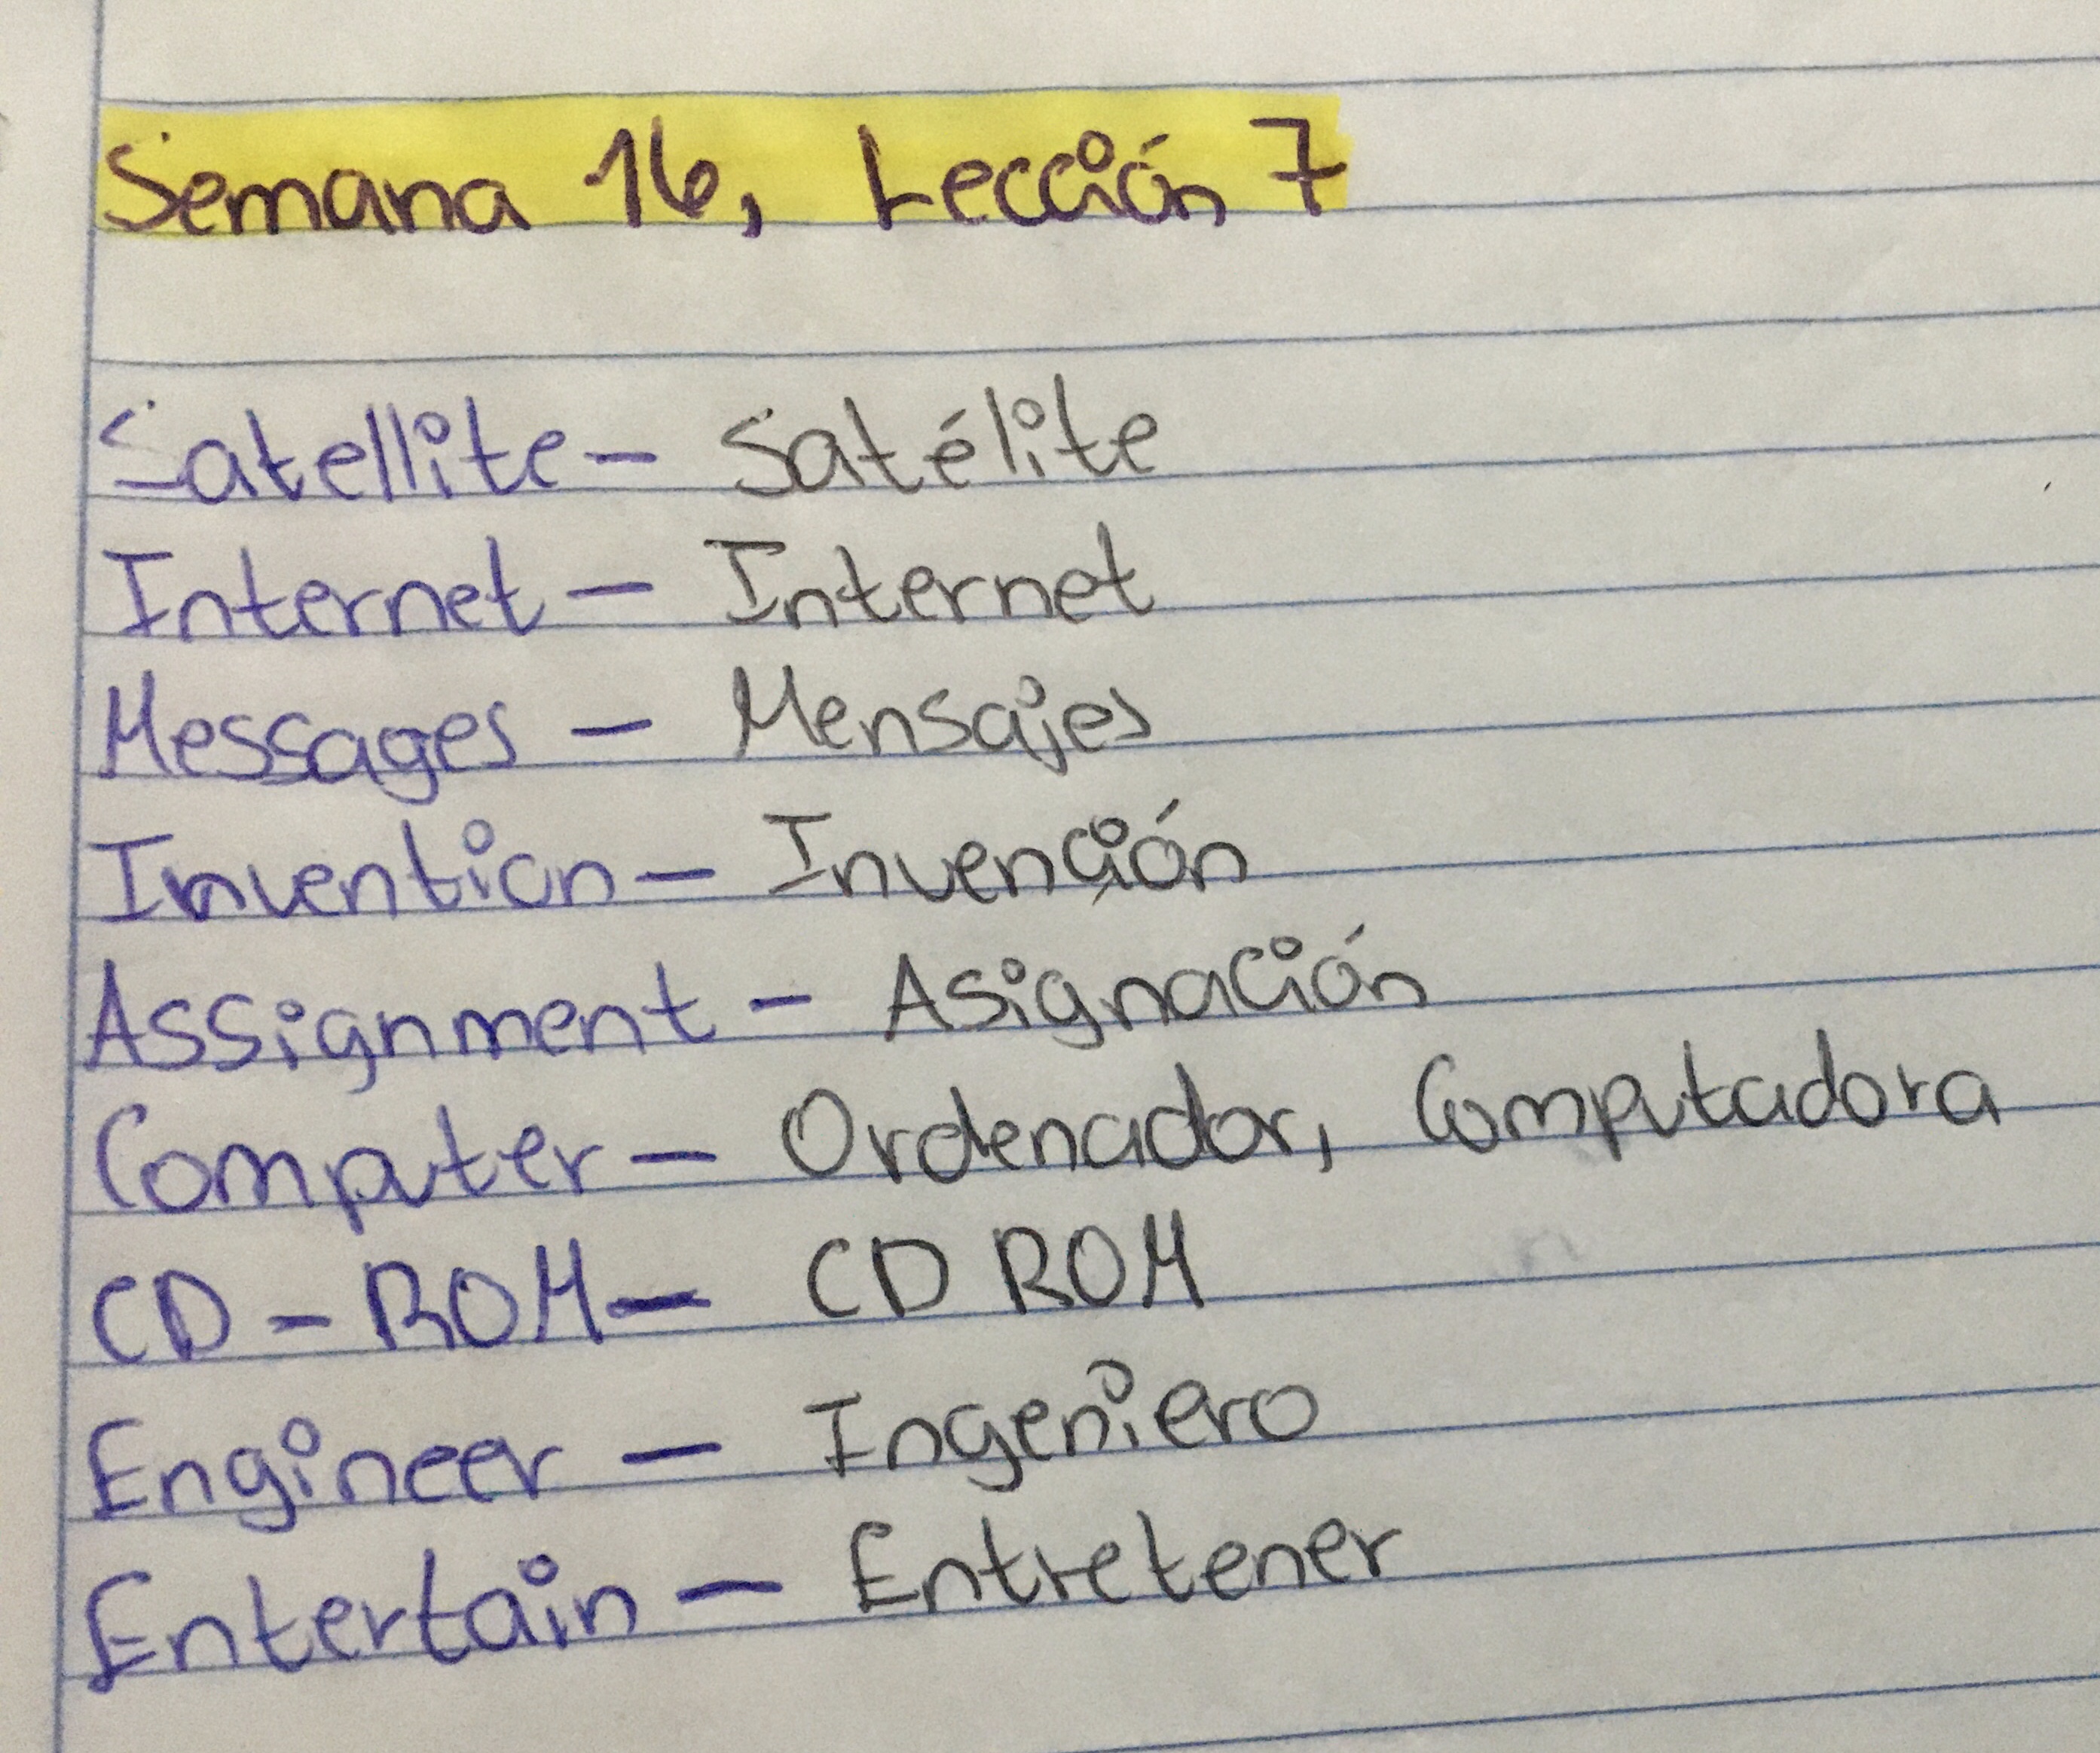 Semana 16, Lección 7
Satellite - Satélite
Internet - Internet
Messages - Mensajes
Invention - Invención
Assignment - Asignación
Computer - Ordenador, Computadora
CD - ROM - CD ROM
Engineer - Ingeniero
Entertain - Entretener